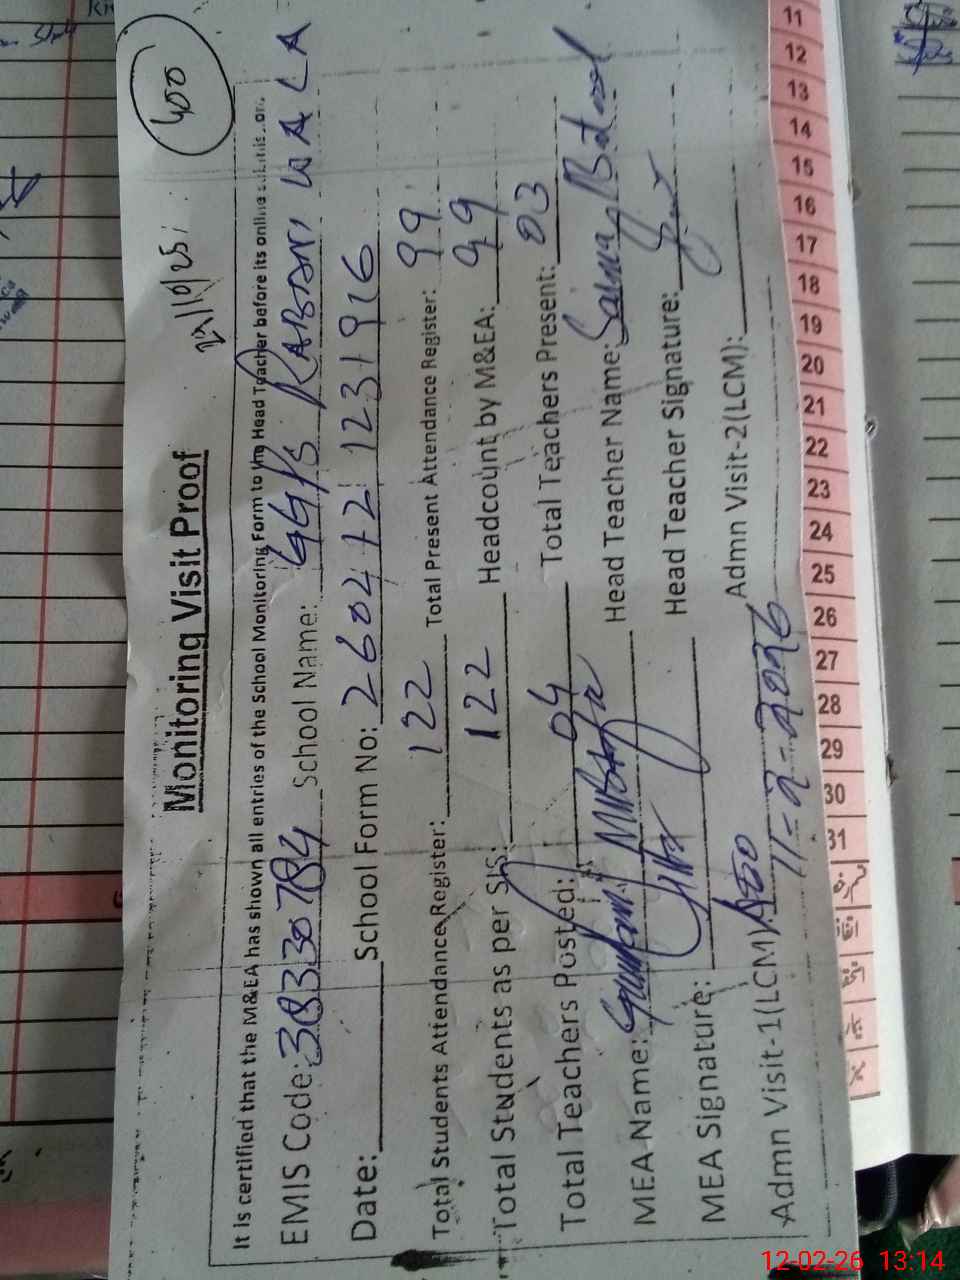 400
Monitoring Visit Proof
It is certified that the M&EA has shown all entries of the School Monitoring Form to the Head Teacher before its online
EMIS Code: 38330784 School Name: GGPS RABBANI WALA
Date: School Form No: 2604121231916
Total Students Attendance Register: 122 Total Present Attendance Register: 99
Total Students as per SIS: 122 Headcount by M&EA: 99
Total Teachers Posted: 04 Total Teachers Present: 03
MEA Name: Ghulam Head Teacher Name: Saima Batool
MEA Signature: Head Teacher Signature:
Admn Visit-1(LCM) AEO 11-2-2026 Admn Visit-2(LCM):
11
12
13
14
15
16
17
18
19
20
21
22
23
24
25
26
27
28
29
30
31
12-02-26 13:14